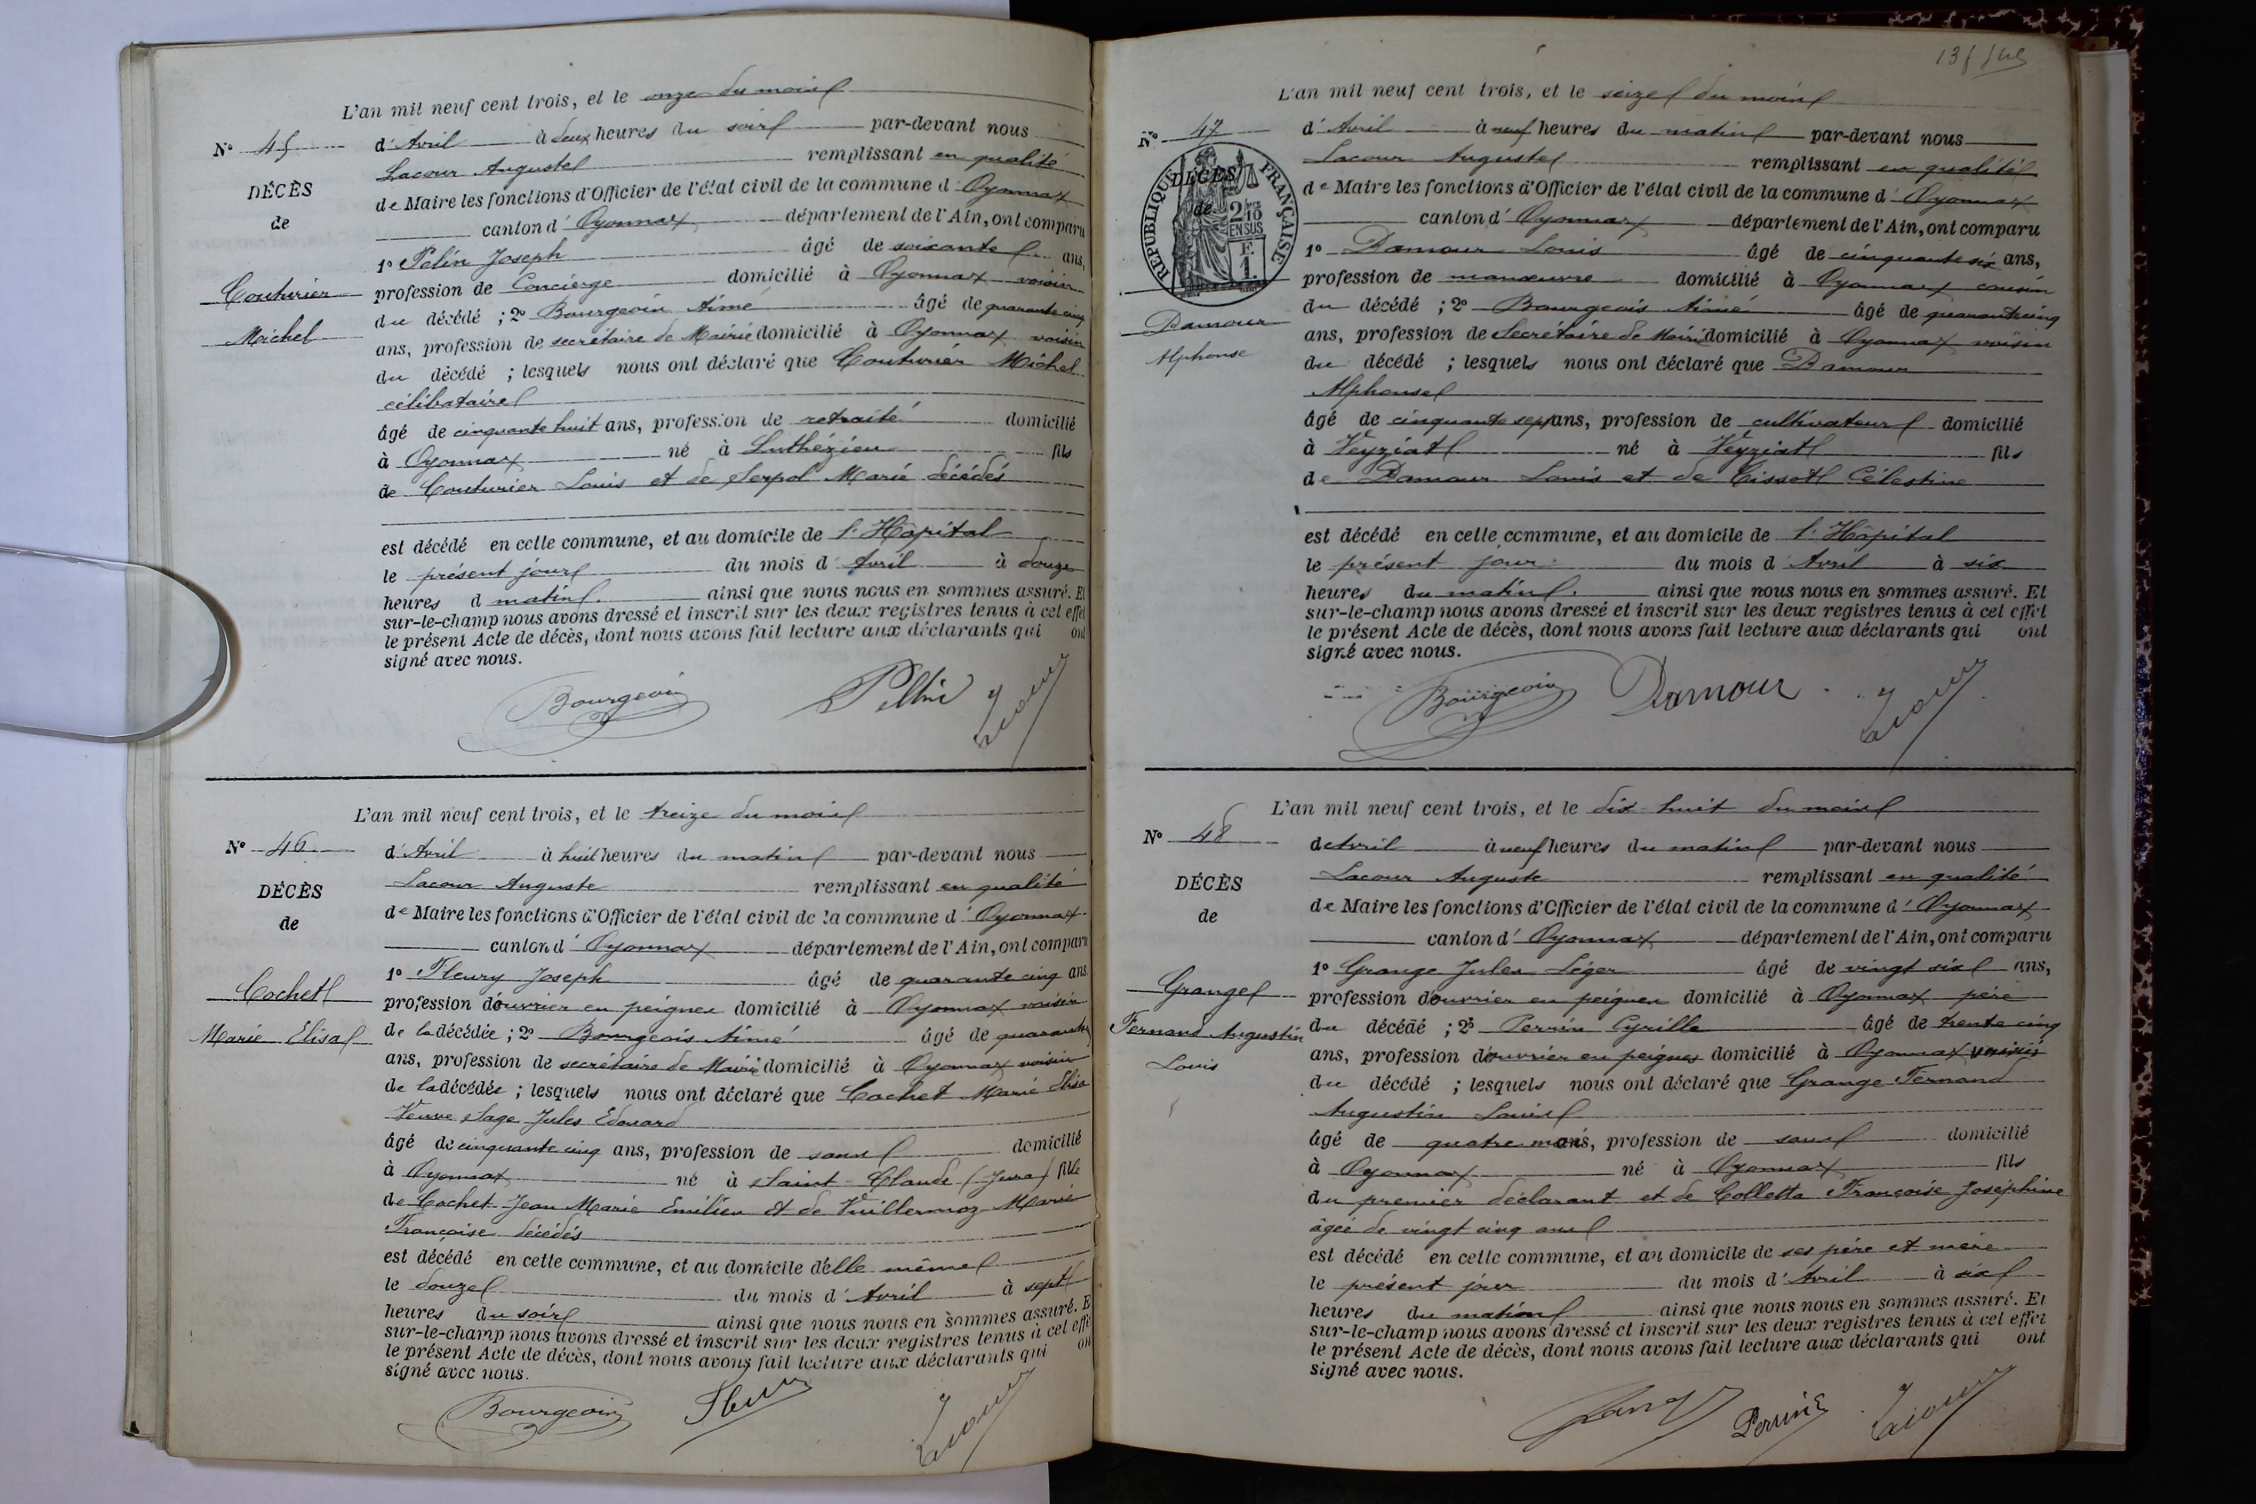 L'an mil neuf cent trois, et le onze du mois
N° 45
d'Avril à deux heures du soir par-devant nous
Lacour Auguste remplissant en qualité
DÉCÈS
de Maire les fonctions d'Officier de l'état civil de la commune d'Oyonnax
de
canton d'Oyonnax département de l'Ain, ont comparu
1° Pélin Joseph âgé de soixante ans,
Couturier
profession de Concierge domicilié à Oyonnax voisin
du décédé ; 2° Bourgeois Aimé âgé de quarante cinq
Michel
ans, profession de secrétaire de Mairie domicilié à Oyonnax voisin
du décédé ; lesquels nous ont déclaré que Couturier Michel
célibataire
âgé de cinquante huit ans, profession de retraité domicilié
à Oyonnax né à Luthézieu fils
de Couturier Louis et de Serpol Marie décédés
est décédé en cette commune, et au domicile de l'Hôpital
le présent jour du mois d'Avril à douze
heures d matin ainsi que nous nous en sommes assuré. Et
sur-le-champ nous avons dressé et inscrit sur les deux registres tenus à cet effet
le présent Acte de décès, dont nous avons fait lecture aux déclarants qui ont
signé avec nous.
Bourgeois Lacour
L'an mil neuf cent trois, et le treize du mois
N° 46
d'Avril à huit heures du matin par-devant nous
Lacour Auguste remplissant en qualité
DÉCÈS
de Maire les fonctions d'Officier de l'état civil de la commune d'Oyonnax
de
canton d'Oyonnax département de l'Ain, ont comparu
1° Fleury Joseph âgé de quarante cinq ans
Cochet
profession d'ouvrier en peignes domicilié à Oyonnax voisin
Marie Elisa
de la décédée ; 2° Bourgeois Aimé âgé de quarante
ans, profession de secrétaire de Mairie domicilié à Oyonnax voisin
de la décédée ; lesquels nous ont déclaré que Cochet Marie Elisa
Veuve Sage Jules Edouard
âgé de cinquante cinq ans, profession de sans domicilié
à Oyonnax né à Saint-Claude (Jura) fille
de Cochet Jean Marie Emilien et de Vuillermoz Marie
Françoise décédés
est décédé en cette commune, et au domicile d'elle même
le douze du mois d'Avril à sept
heures du soir ainsi que nous nous en sommes assuré. Et
sur-le-champ nous avons dressé et inscrit sur les deux registres tenus à cet effet
le présent Acte de décès, dont nous avons fait lecture aux déclarants qui ont
signé avec nous.
Bourgeois Fleury Lacour
L'an mil neuf cent trois, et le seize du mois
N° 47
d'Avril à neuf heures du matin par-devant nous
Lacour Auguste remplissant en qualité
RÉPUBLIQUE FRANÇAISE
DÉCÈS
de
2/10 EN SUS
F. 1.
de Maire les fonctions d'Officier de l'état civil de la commune d'Oyonnax
canton d'Oyonnax département de l'Ain, ont comparu
1° Damour Louis âgé de cinquante six ans,
profession de manœuvre domicilié à Oyonnax cousin
Damour
du décédé ; 2° Bourgeois Aimé âgé de quarante cinq
Alphonse
ans, profession de Secrétaire de Mairie domicilié à Oyonnax voisin
du décédé ; lesquels nous ont déclaré que Damour
Alphonse
âgé de cinquante sept ans, profession de cultivateur domicilié
à Veyziat né à Veyziat fils
de Damour Louis et de Cissot Célestine
est décédé en cette commune, et au domicile de l'Hôpital
le présent jour du mois d'Avril à six
heures du matin ainsi que nous nous en sommes assuré. Et
sur-le-champ nous avons dressé et inscrit sur les deux registres tenus à cet effet
le présent Acte de décès, dont nous avons fait lecture aux déclarants qui ont
signé avec nous.
Bourgeois Damour Lacour
L'an mil neuf cent trois, et le dix huit du mois
N° 48
d'Avril à neuf heures du matin par-devant nous
Lacour Auguste remplissant en qualité
DÉCÈS
de Maire les fonctions d'Officier de l'état civil de la commune d'Oyonnax
de
canton d'Oyonnax département de l'Ain, ont comparu
1° Grange Jules Léger âgé de vingt six ans,
Grange
profession d'ouvrier en peignes domicilié à Oyonnax père
Fernand Augustin
du décédé ; 2° Perrin Cyrille âgé de trente cinq
Louis
ans, profession d'ouvrier en peignes domicilié à Oyonnax voisin
du décédé ; lesquels nous ont déclaré que Grange Fernand
Augustin Louis
âgé de quatre mois, profession de sans domicilié
à Oyonnax né à Oyonnax fils
du premier déclarant et de Colletta Françoise Joséphine
âgée de vingt cinq ans
est décédé en cette commune, et au domicile de ses père et mère
le présent jour du mois d'Avril à six
heures du matin ainsi que nous nous en sommes assuré. Et
sur-le-champ nous avons dressé et inscrit sur les deux registres tenus à cet effet
le présent Acte de décès, dont nous avons fait lecture aux déclarants qui ont
signé avec nous.
Perrin Lacour